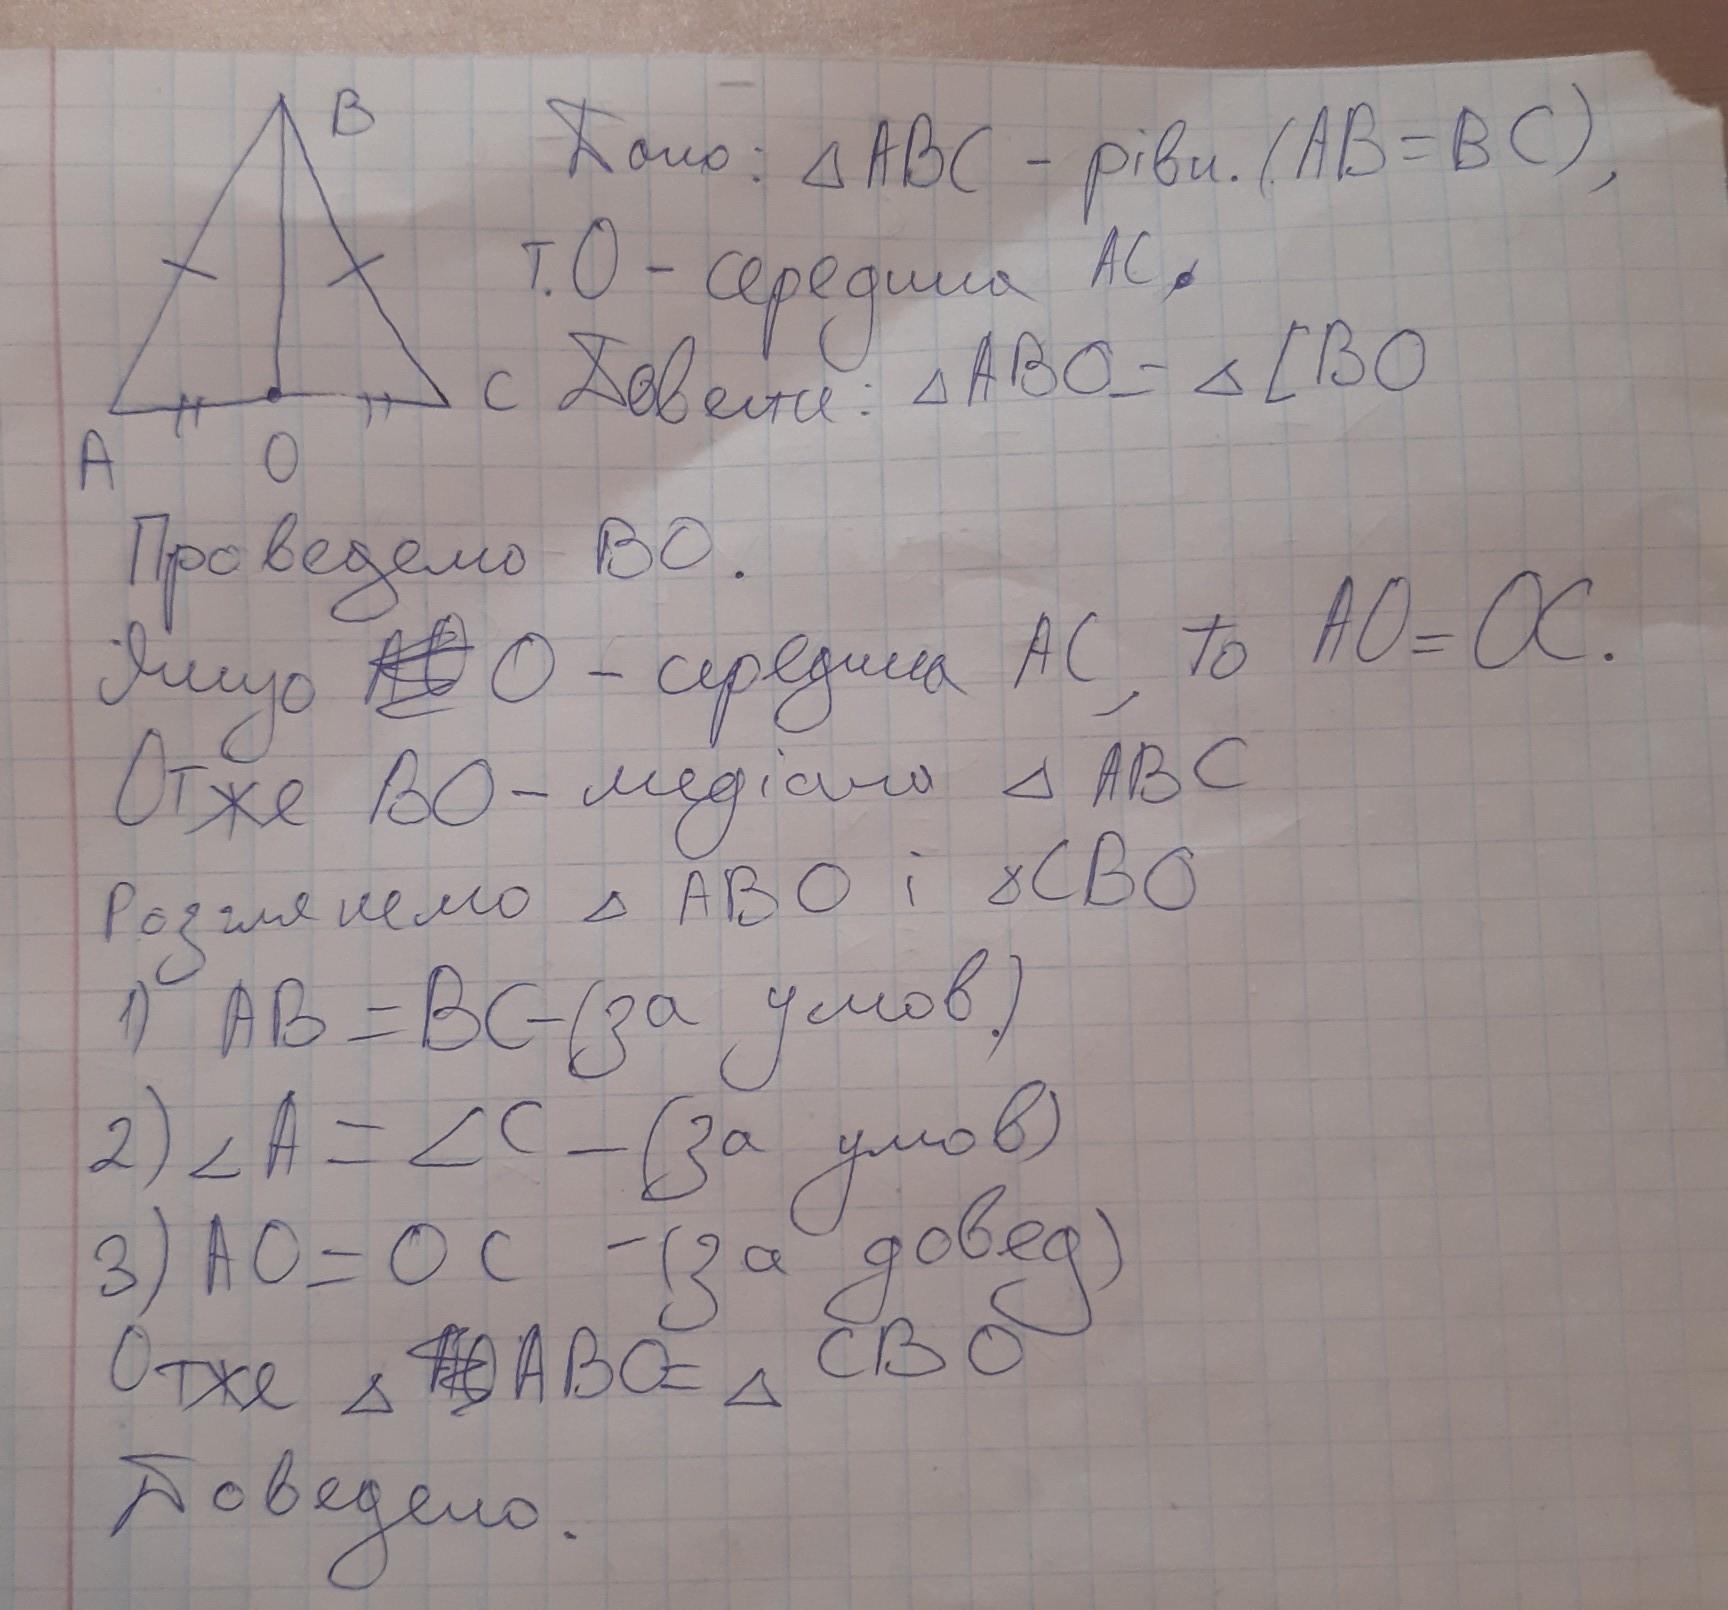 B
Дано: △ABC - рівн. (AB=BC),
т.O - середина AC.
C Довести: △ABO = △CBO
A O
Проведемо BO.
Якщо O - середина AC, то AO=OC.
Отже BO - медіана △ABC
Розглянемо △ABO і △CBO
1) AB = BC - (за умов.)
2) ∠A = ∠C - (за умов)
3) AO = OC - (за довед)
Отже △ABO = △CBO
Доведено.